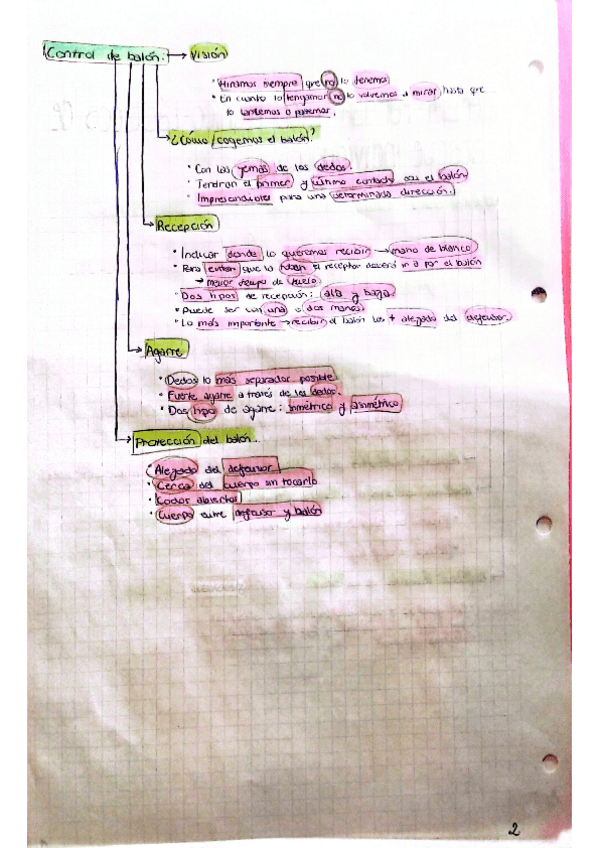 Control de balón: → Visión
• Miramos siempre que no lo tenemos
• En cuanto lo tengamos no lo volvemos a mirar, hasta que
lo lancemos o pasemos.
¿Cómo cogemos el balón?
• Con las yemas de los dedos.
• Tendrán el primer y último contacto con el balón
• Imprescindibles para una determinada dirección.
Recepción
• Indicar donde lo queremos recibir → mano de blanco
• Para evitar que la roben el receptor deberá ir a por el balón
→ menor tiempo de vuelo.
• Dos tipos de recepción: alta y baja.
• Puede ser con una o dos manos.
• Lo más importante → recibir el balón lo + alejado del defensor.
Agarre
• Dedos lo más separador posible.
• Fuerte agarre a través de los dedos.
• Dos tipo de agarre: simétrico y asimétrico
Protección del balón.
• Alejado del defensor
• Cerca del cuerpo sin tocarlo
• Codos abiertos
• Cuerpo entre defensor y balón
2